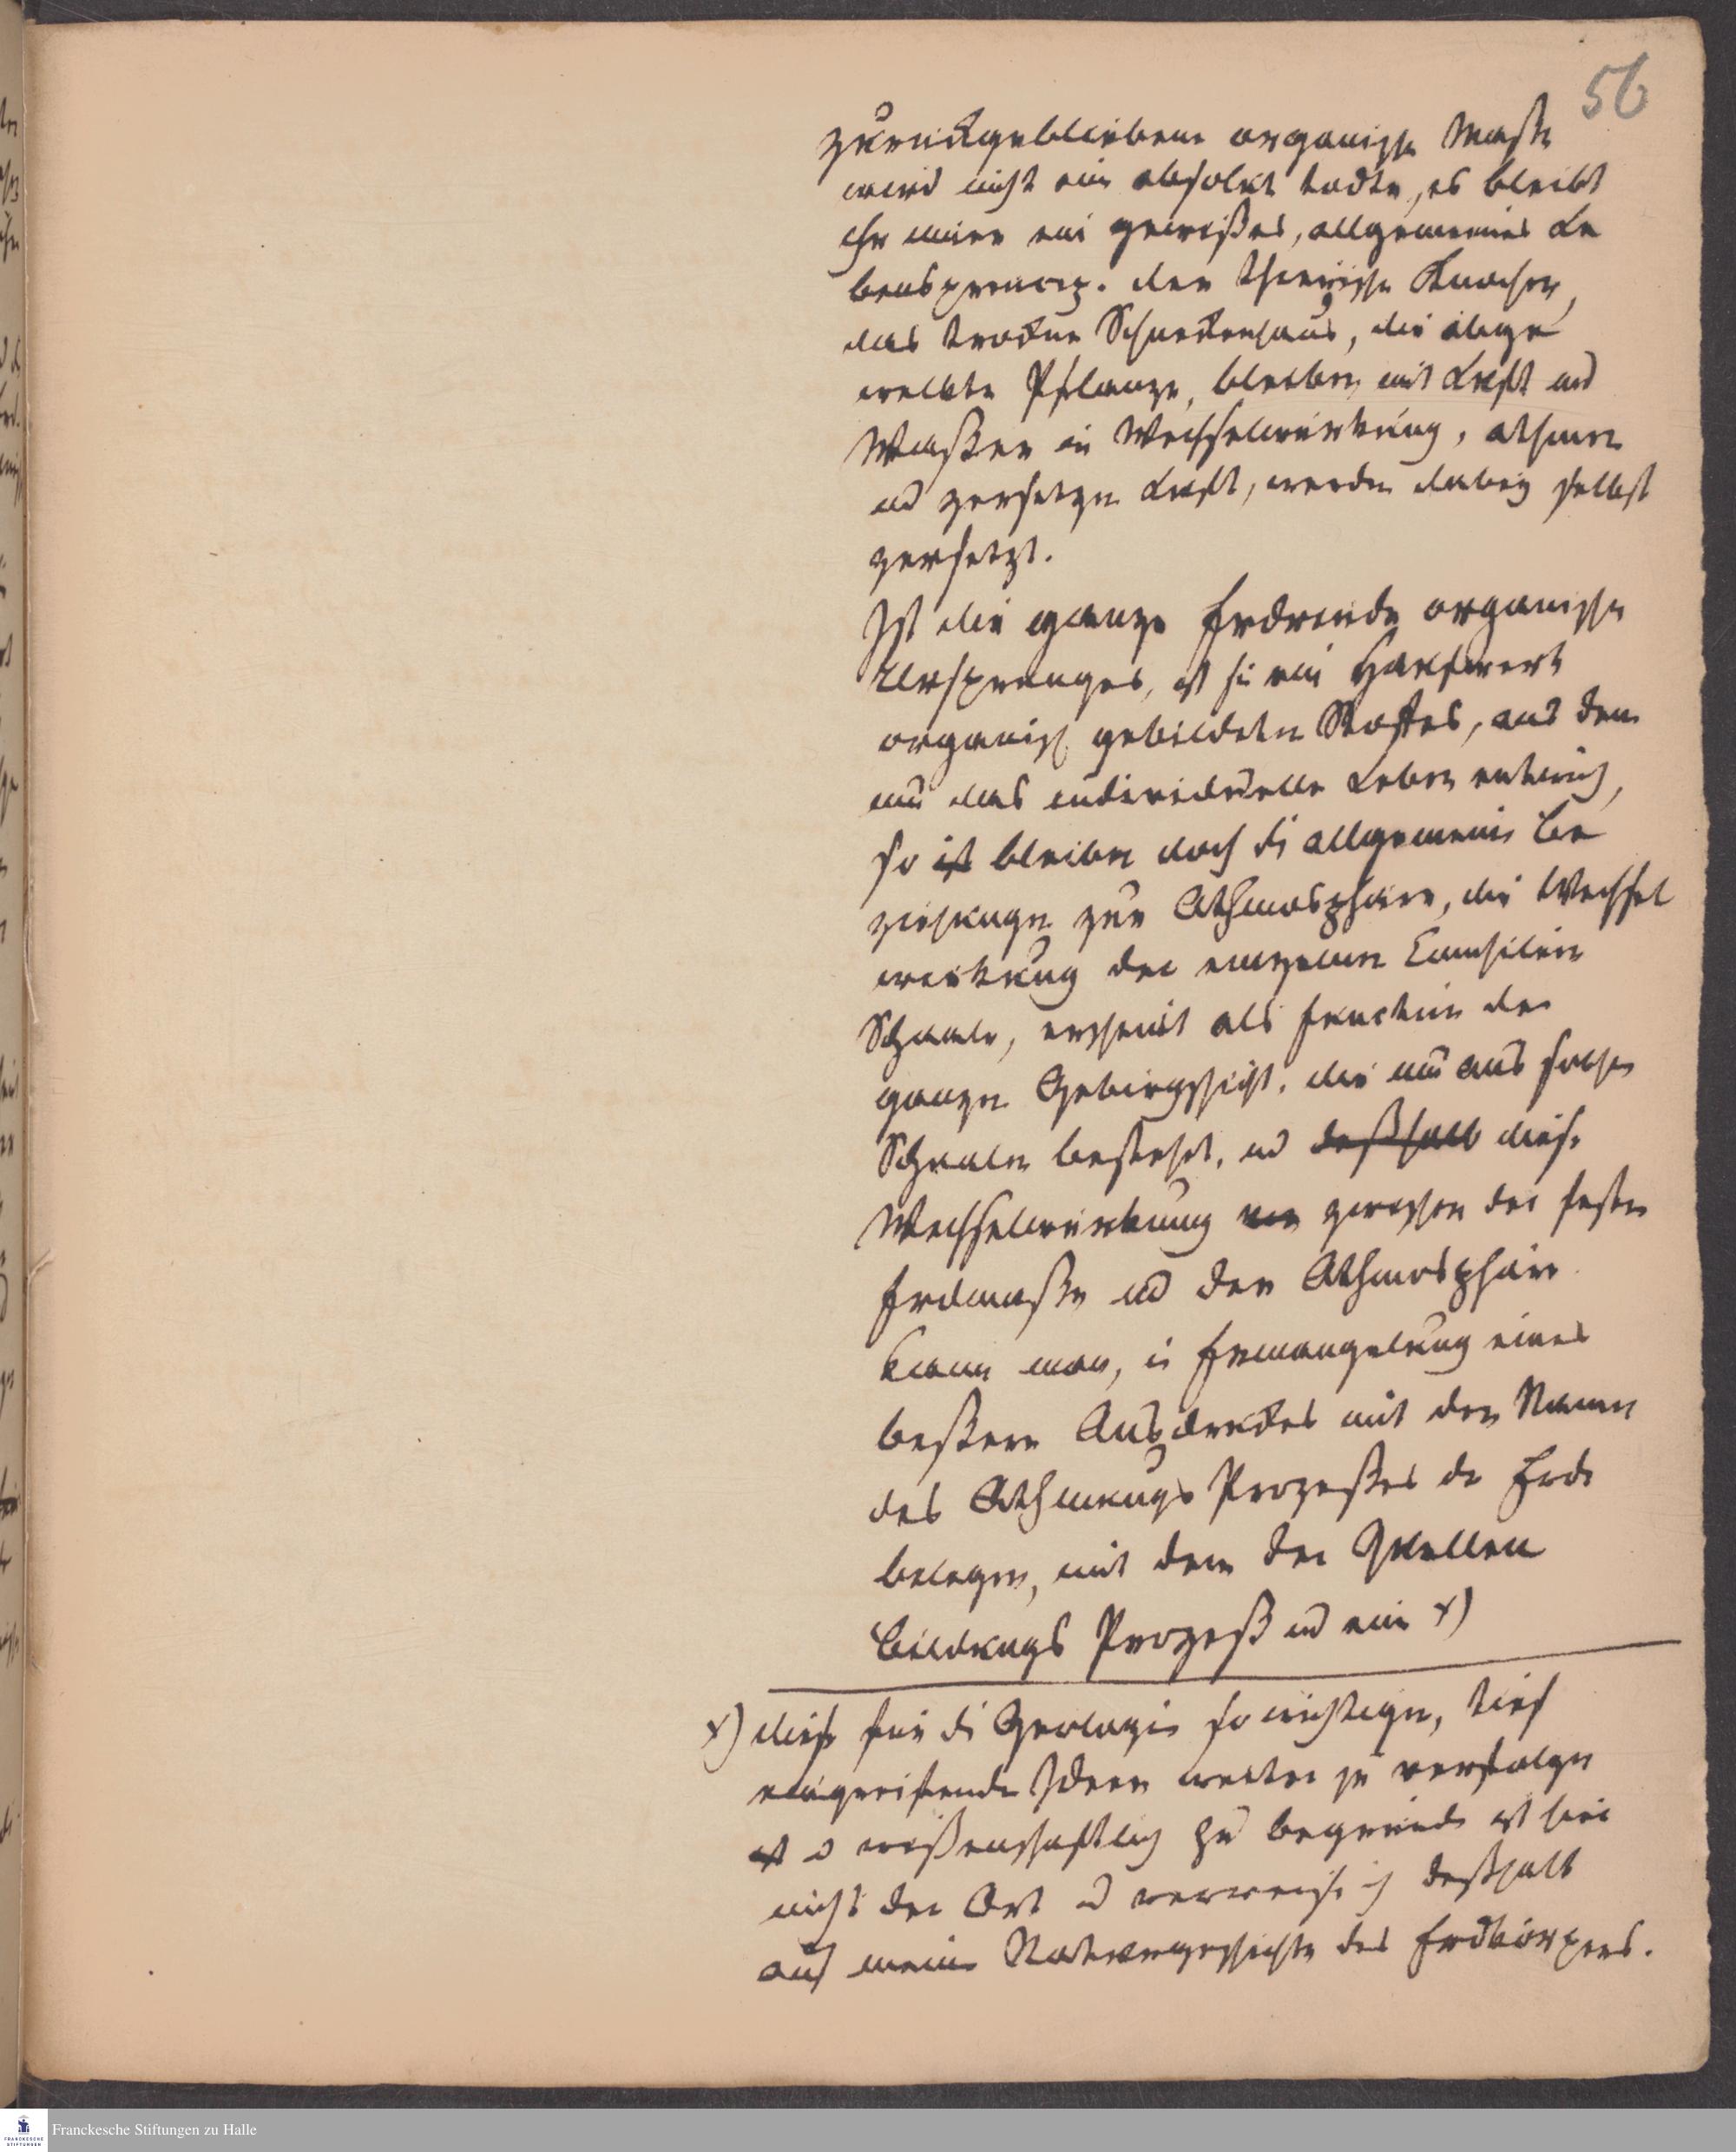 56
zurückgebliebene organische Masse
wird nicht eine absolut todte, es bleibt
ihr immer ein gewißes, allgemeines Le
bensprincip. der thierische Knochen,
das trockne Schneckenhaus, die abge
welkte Pflanze, bleiben mit Luft und
Waßer in Wechselwirkung, athmen
und zersetzen Luft, werden dabey selbst
zersetzt.
Ist die ganze Erdrinde organischen
Ursprunges, ist sie ein Haufwerk
organisch gebildeten Stoffes, aus dem
nur das individuelle Leben entwich,
so ist bleiben doch die allgemeinen Be
ziehungen zur Athmosphäre, die Wechsel
wirkung der einzelnen Conchilien
Schaale, erscheint als Function der
ganzen Gebirgsschicht, die nur aus solchen
Schaalen besteht, und deßhalb diese
Wechselwirkung zwischen der festen
Erdmaße und der Athmosphäre
kann man, in Ermangelung eines
beßern Ausdruckes mit dem Namen
des Athmungs Prozeßes der Erde
belegen, mit dem der Quellen
bildungs Prozeß und ein x)
x) diese für die Geologie so wichtigen, tief
eingreifenden Ideen weiter zu verfolgen
ist u wißenschaftlich zu begründen ist hier
nicht der Ort und verweise ich deßhalb
auf meine Naturgeschichte des Erdkörpers.
Franckesche Stiftungen zu Halle
FRANCKESCHE
STIFTUNGEN